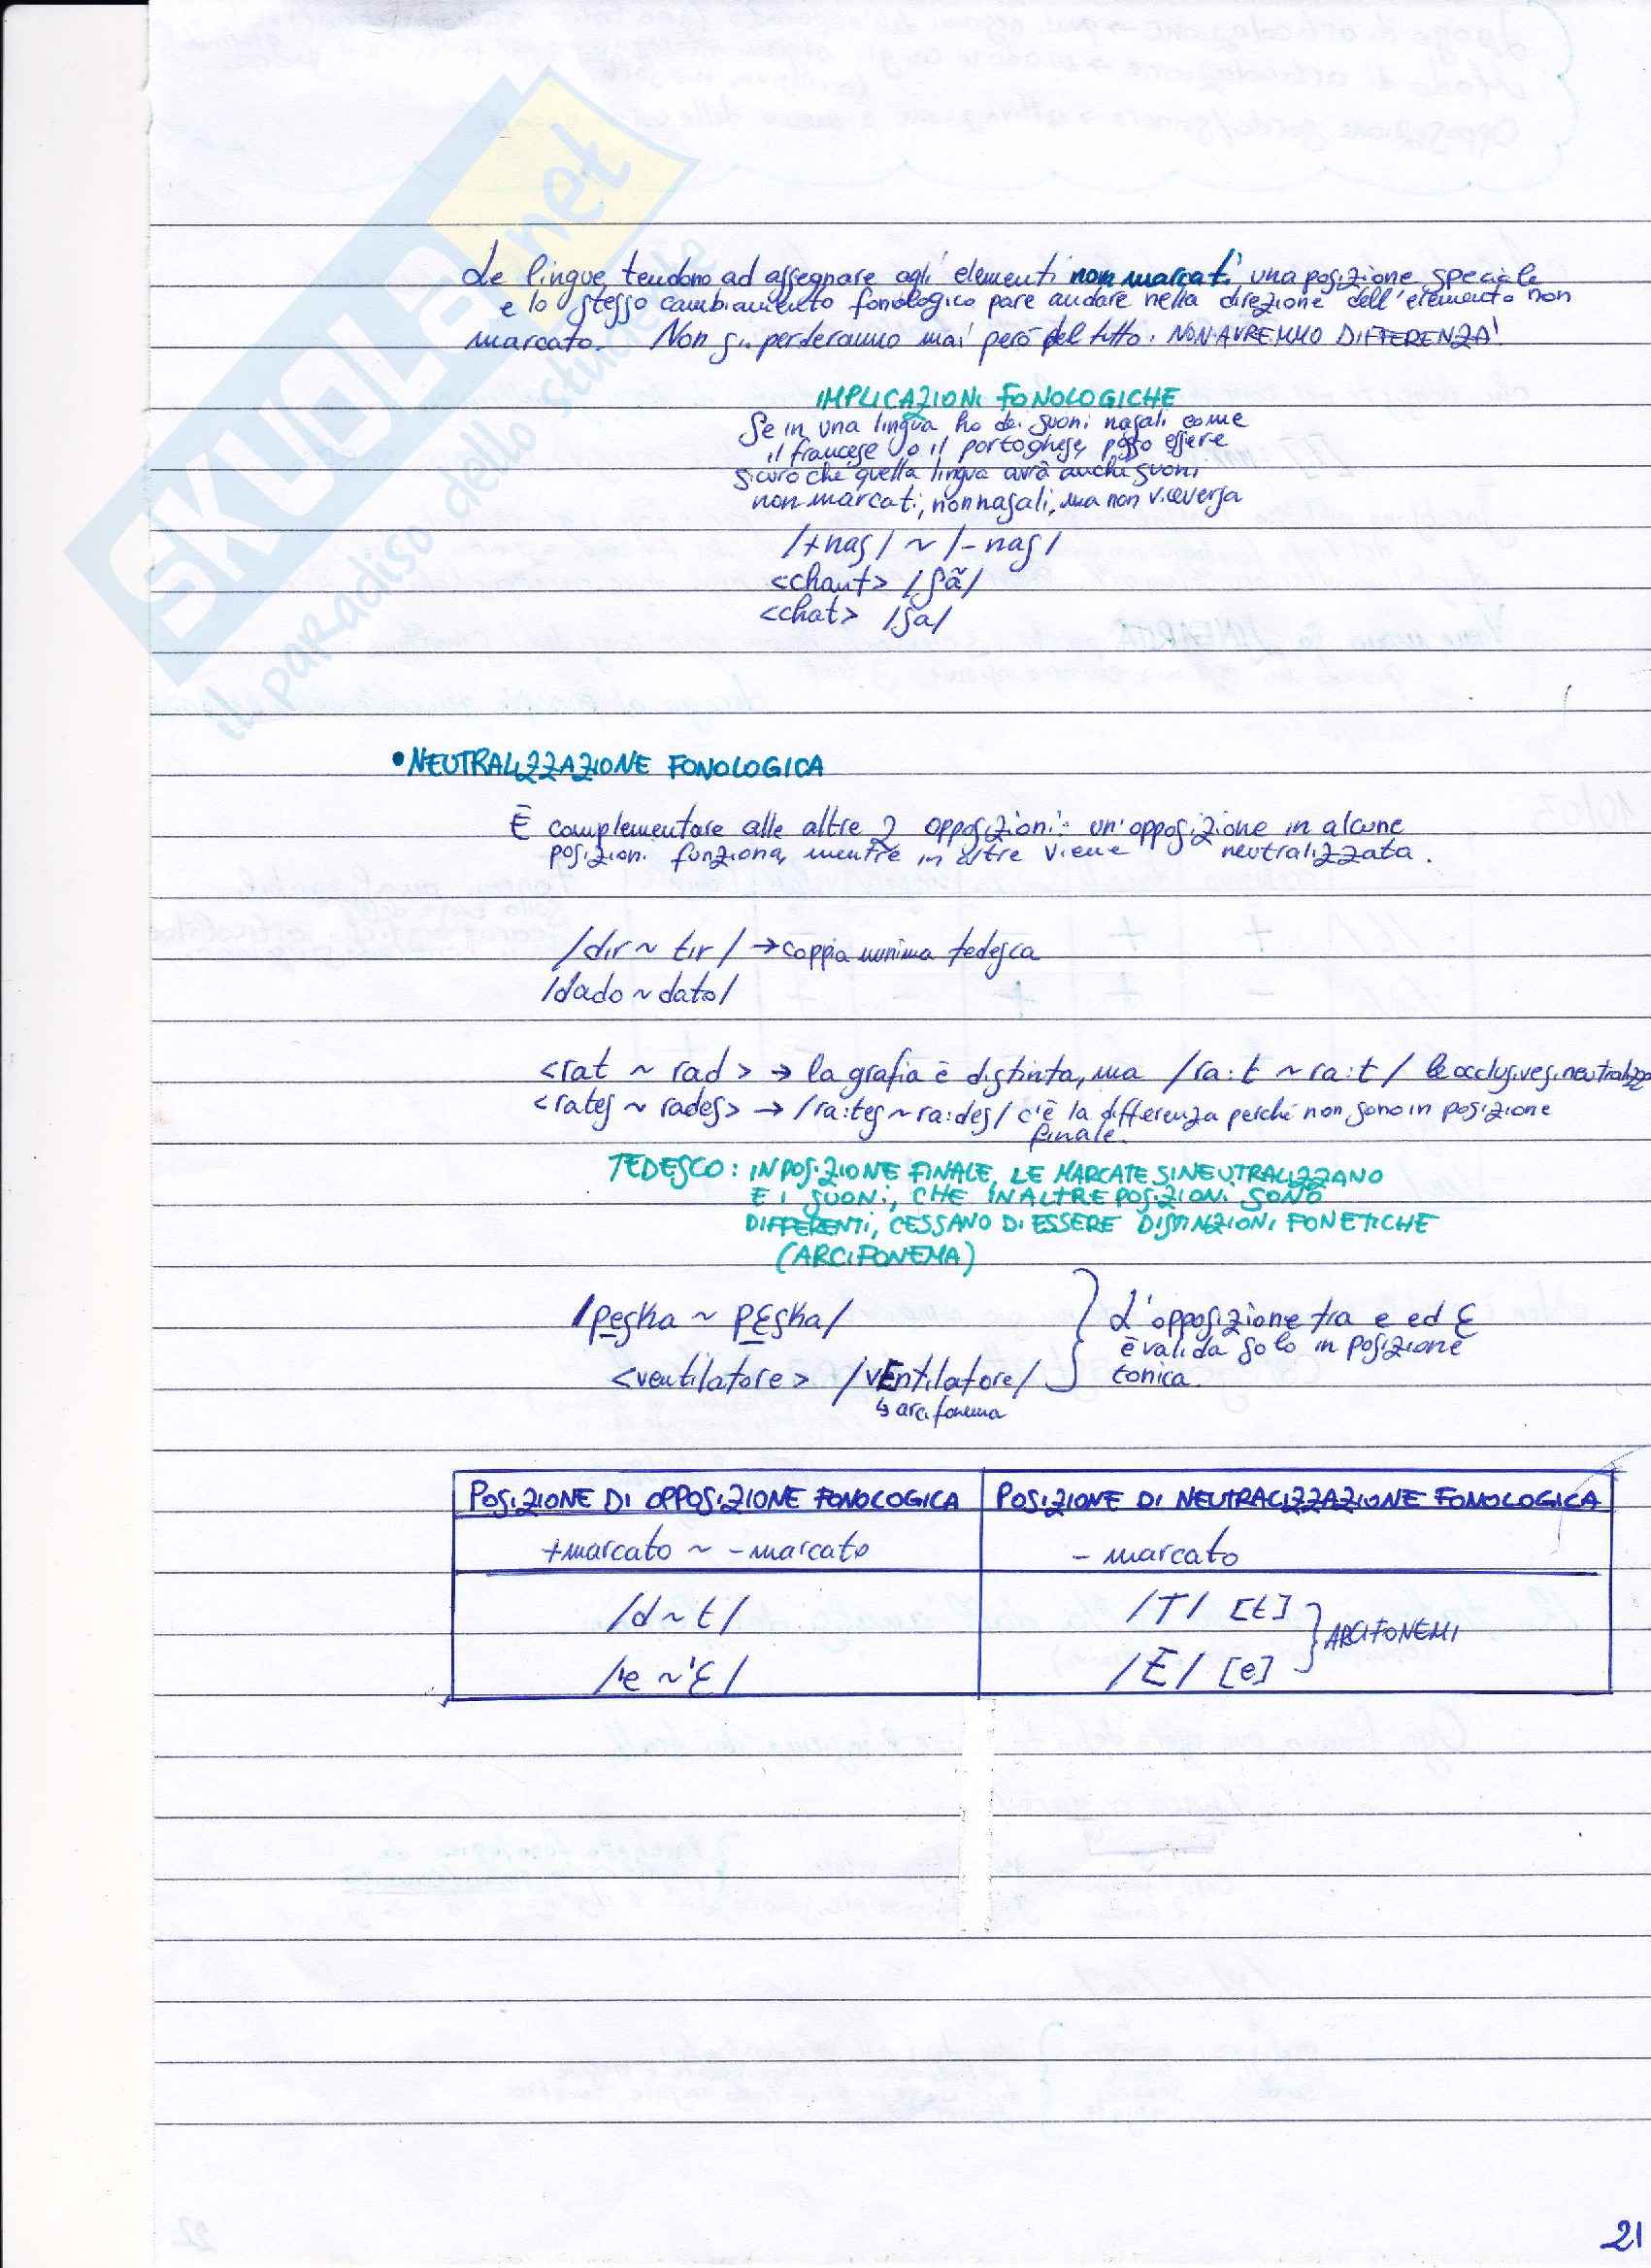 SKUOLA.net
il paradiso dello studente
Le lingue tendono ad assegnare agli elementi non marcati una posizione speciale
e lo stesso cambiamento fonologico pare andare nella direzione dell'elemento non
marcato. Non si perderanno mai però del tutto: NON AVREMMO DIFFERENZA!
IMPLICAZIONI FONOLOGICHE
Se in una lingua ho dei suoni nasali come
il francese o il portoghese, posso essere
sicuro che quella lingua avrà anche suoni
non marcati, non nasali, ma non viceversa
/+nas/ ~ /-nas/
<chant> /ʃã/
<chat> /ʃa/
• NEUTRALIZZAZIONE FONOLOGICA
È complementare alle altre 2 opposizioni: un'opposizione in alcune
posizioni funziona, mentre in altre viene neutralizzata.
/dır ~ tır/ → coppia minima tedesca
/dado ~ dato/
<rat ~ rad> → la grafia è distinta, ma /ra:t ~ ra:t/ le occlusive si neutralizz
<rates ~ rades> → /ra:tes ~ ra:des/ c'è la differenza perché non sono in posizione
finale.
TEDESCO: IN POSIZIONE FINALE, LE MARCATE SI NEUTRALIZZANO
E I SUONI, CHE IN ALTRE POSIZIONI SONO
DIFFERENTI, CESSANO DI ESSERE DISTINZIONI FONETICHE
(ARCIFONEMA)
/peska ~ pɛska/ } L'opposizione tra e ed ɛ
è valida solo in posizione
<ventilatore> /vEntilatore/ tonica.
↳ arcifonema
POSIZIONE DI OPPOSIZIONE FONOLOGICA | POSIZIONE DI NEUTRALIZZAZIONE FONOLOGICA
+marcato ~ -marcato | - marcato
/d ~ t/ | /T/ [t] } ARCIFONEMI
/'e ~ 'ɛ/ | /E/ [e]
21